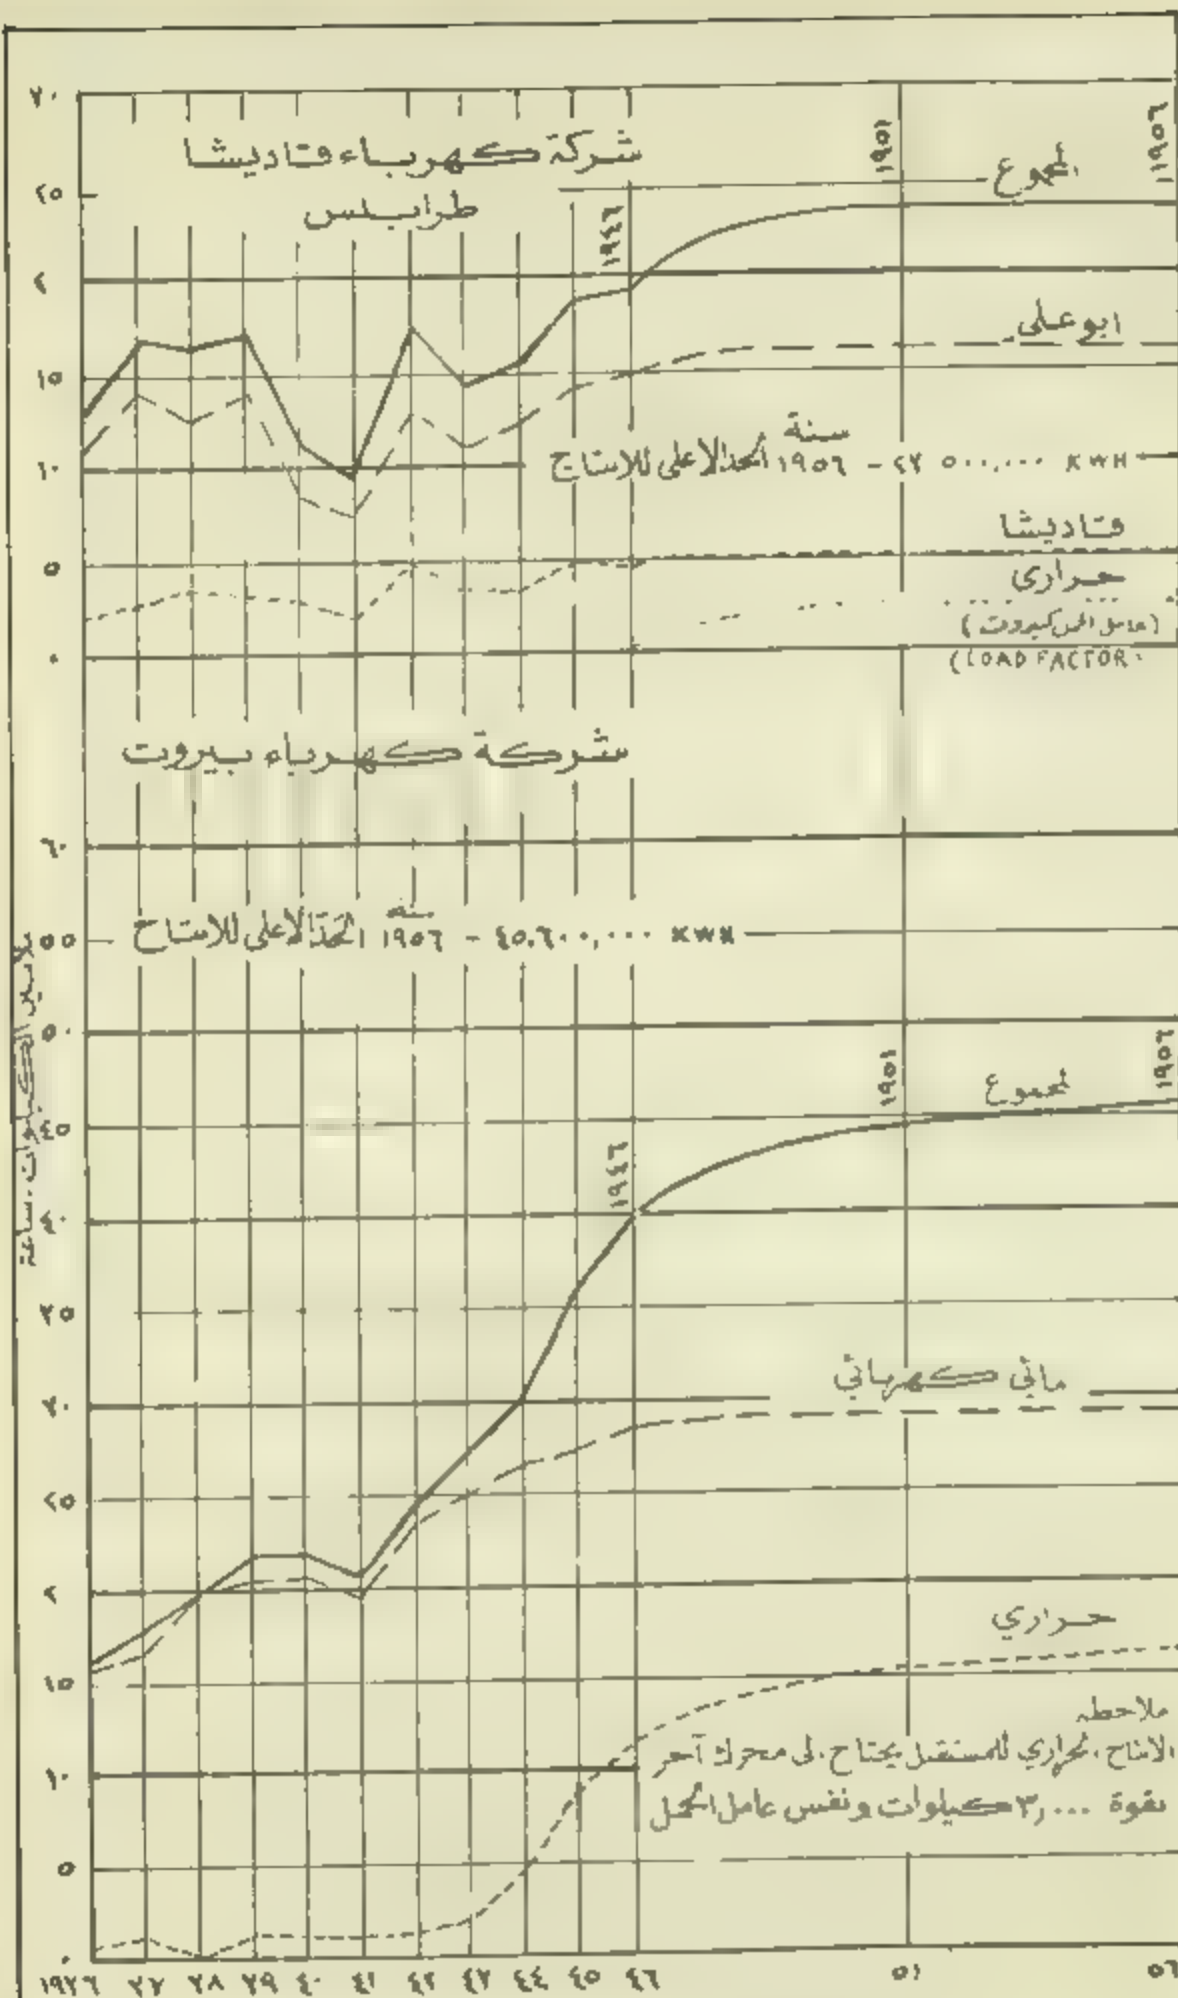 ٣٠
شركة كهرباء قاديشا
طرابلس
١٩٤٦
١٩٥١
١٩٥٦
المجموع
٢٥
٢٠
ابو علي
١٥
سنة
١٩٥٦ الحد الاعلى للانتاج - ٢٣ ٥٠٠,٠٠٠ KWH
١٠
قاديشا
٥
حراري
(عامل الحمل كبيروت)
(LOAD FACTOR
٠
شركة كهرباء بيروت
٦٠
سنة
١٩٥٦ الحد الاعلى للانتاج - ٤٥,٦٠٠,٠٠٠ KWH
٥٥
ملايين الكيلوات. ساعة
٥٠
١٩٤٦
١٩٥١
١٩٥٦
المجموع
٤٥
٤٠
٣٥
مائي كهربائي
٣٠
٢٥
٢٠
حراري
١٥
ملاحظه
الانتاج الحراري للمستقبل يحتاج الى محرك آخر
بقوة ٣,٠٠٠ كيلوات ونفس عامل الحمل
١٠
٥
٠
١٩٣٦ ٣٧ ٣٨ ٣٩ ٤٠ ٤١ ٤٢ ٤٣ ٤٤ ٤٥ ٤٦ ٥١ ٥٦